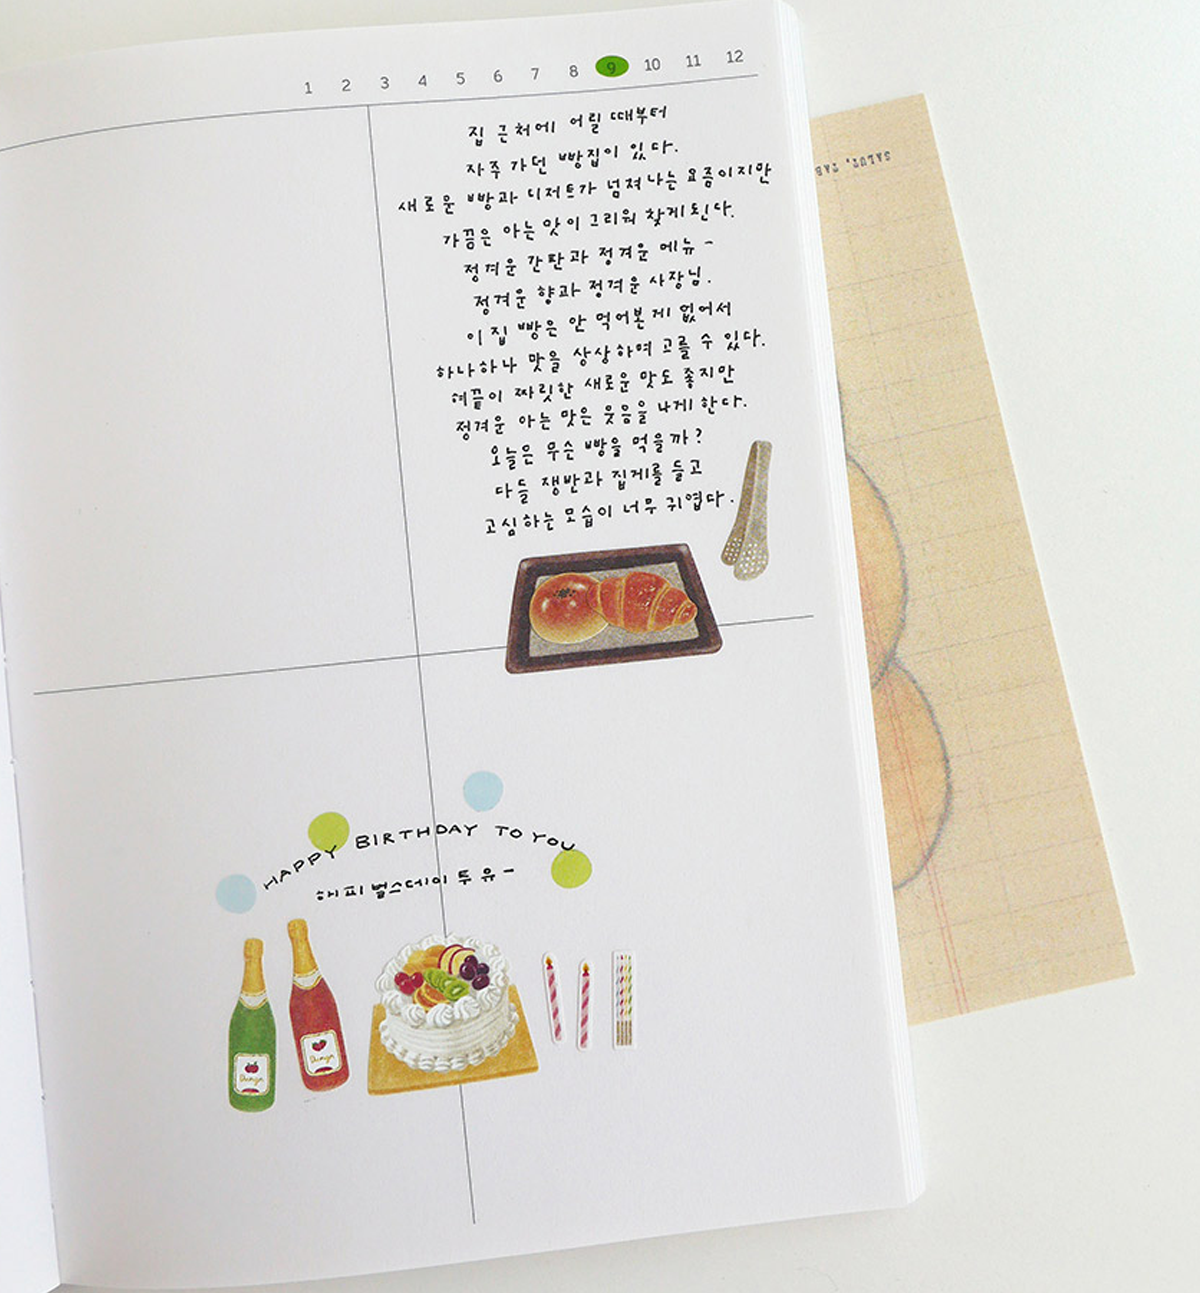 1 2 3 4 5 6 7 8 9 10 11 12
집 근처에 어릴 때부터
자주 가던 빵집이 있다.
새로운 빵과 디저트가 넘쳐나는 요즘이지만
가끔은 아는 맛이 그리워 찾게된다.
정겨운 간판과 정겨운 메뉴 -
정겨운 향과 정겨운 사장님.
이 집 빵은 안 먹어본게 없어서
하나하나 맛을 상상하며 고를 수 있다.
혀끝이 짜릿한 새로운 맛도 좋지만
정겨운 아는 맛은 웃음을 나게 한다.
오늘은 무슨 빵을 먹을까?
다들 쟁반과 집게를 들고
고심하는 모습이 너무 귀엽다.
SALUT, TAB
HAPPY BIRTHDAY TO YOU
해피 벌스데이 투 유 -